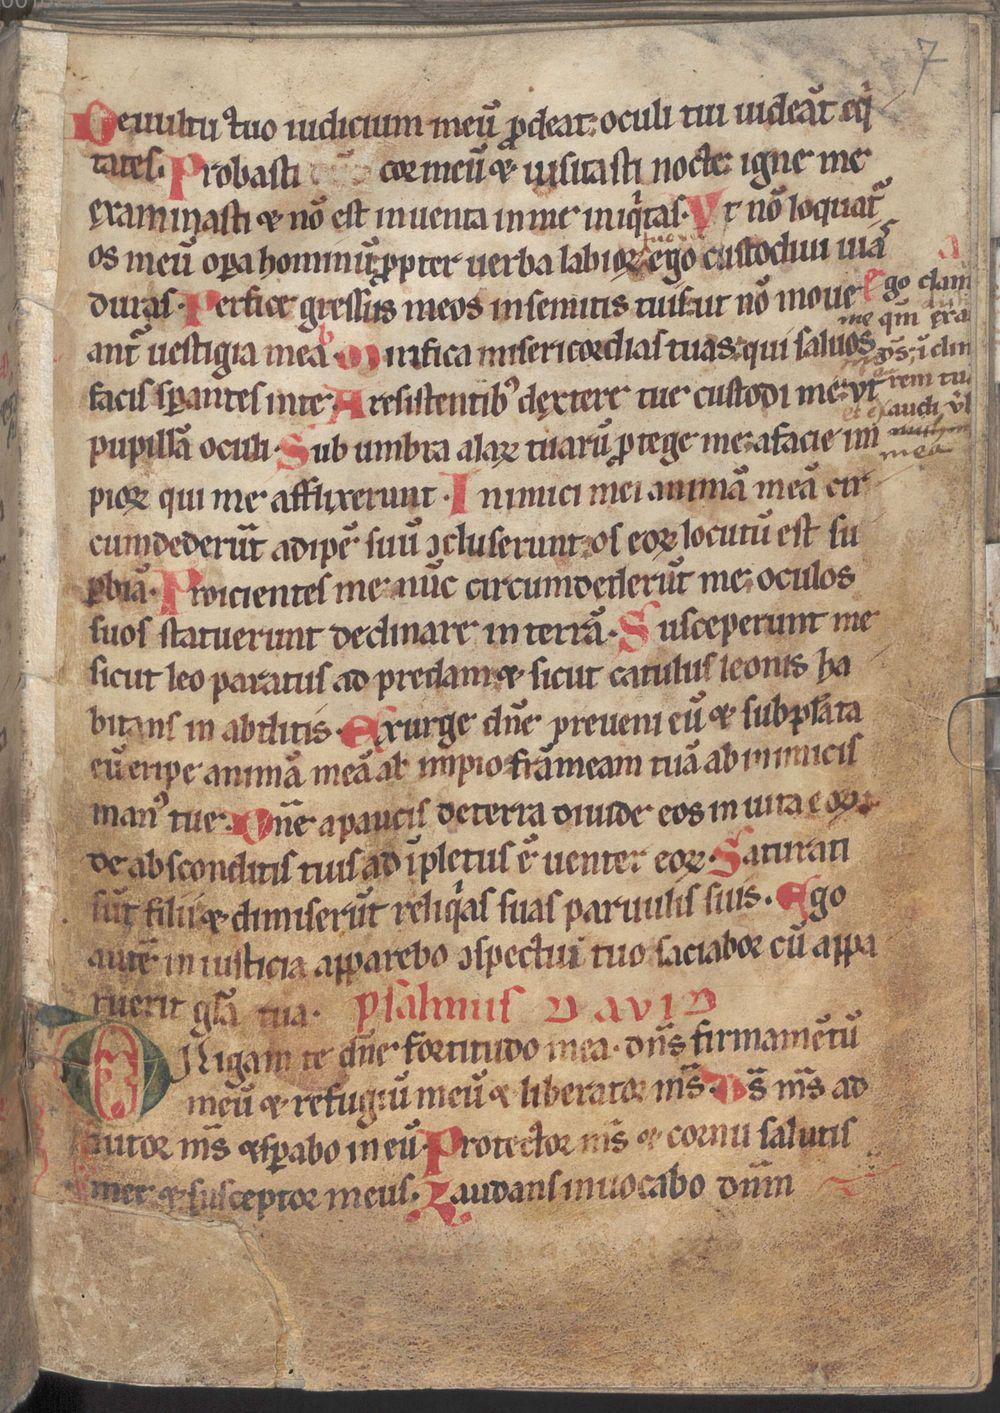 7
De uultu tuo iudicium meū ꝓdeat: oculi tui uideāt eq̇
tates. Probasti cor meū ⁊ uisitasti nocte: igne me
examinasti ⁊ nō est inuenta in me iniq̇tas. Vt nō loquat᷑
os meū oꝑa hominū: ꝓpter uerba labioꝝ tuoꝝ ego custodiui uia᷑
duras. Perfice gressus meos in semitis tuis: ut nō moue
ant᷑ uestigia mea. Mirifica misericordias tuas: qui saluos
facis sꝑantes in te. A resistentibꝰ dextere tue custodi me: ut
pupillā oculi. Sub umbra alaꝝ tuarū ꝓtege me: a facie im
pioꝝ qui me afflixerunt. Inimici mei animā meā cir
cumdederūt adipē suū ↄcluserunt: os eoꝝ locutū est su
ꝑbiā. Proicientes me nūc circumdederūt me: oculos
suos statuerunt declinare in terrā. Susceperunt me
sicut leo paratus ad predam: ⁊ sicut catulus leonis ha
bitans in abditis. Exurge dn̄e preueni eū ⁊ subplāta
eū: eripe animā meā ab impio frāmeam tuā ab inimicis
manꝰ tue. Dn̄e a paucis de terra diuide eos in uita eoꝝ:
de absconditis tuis ad īpletus ē uenter eoꝝ. Saturati
sūt filiis ⁊ dimiserūt reliq̇as suas paruulis suis. Ego
autē in iusticia apparebo ↄspectui tuo saciabor cū appa
ruerit gl̄a tua. psalmus DAVID
Diligam te dn̄e fortitudo mea. dn̄s firmamētū
meū ⁊ refugiū meū ⁊ liberator ms̄. Ds̄ ms̄ ad
iutor ms̄ ⁊ sꝑabo in eū. Protector ms̄ ⁊ cornu salutis
mee ⁊ susceptor meus. Laudans inuocabo dn̄m
Ego clam
me qm̄ exa
ds̄: i clin
rem tu
et exaudi v̄b
mea